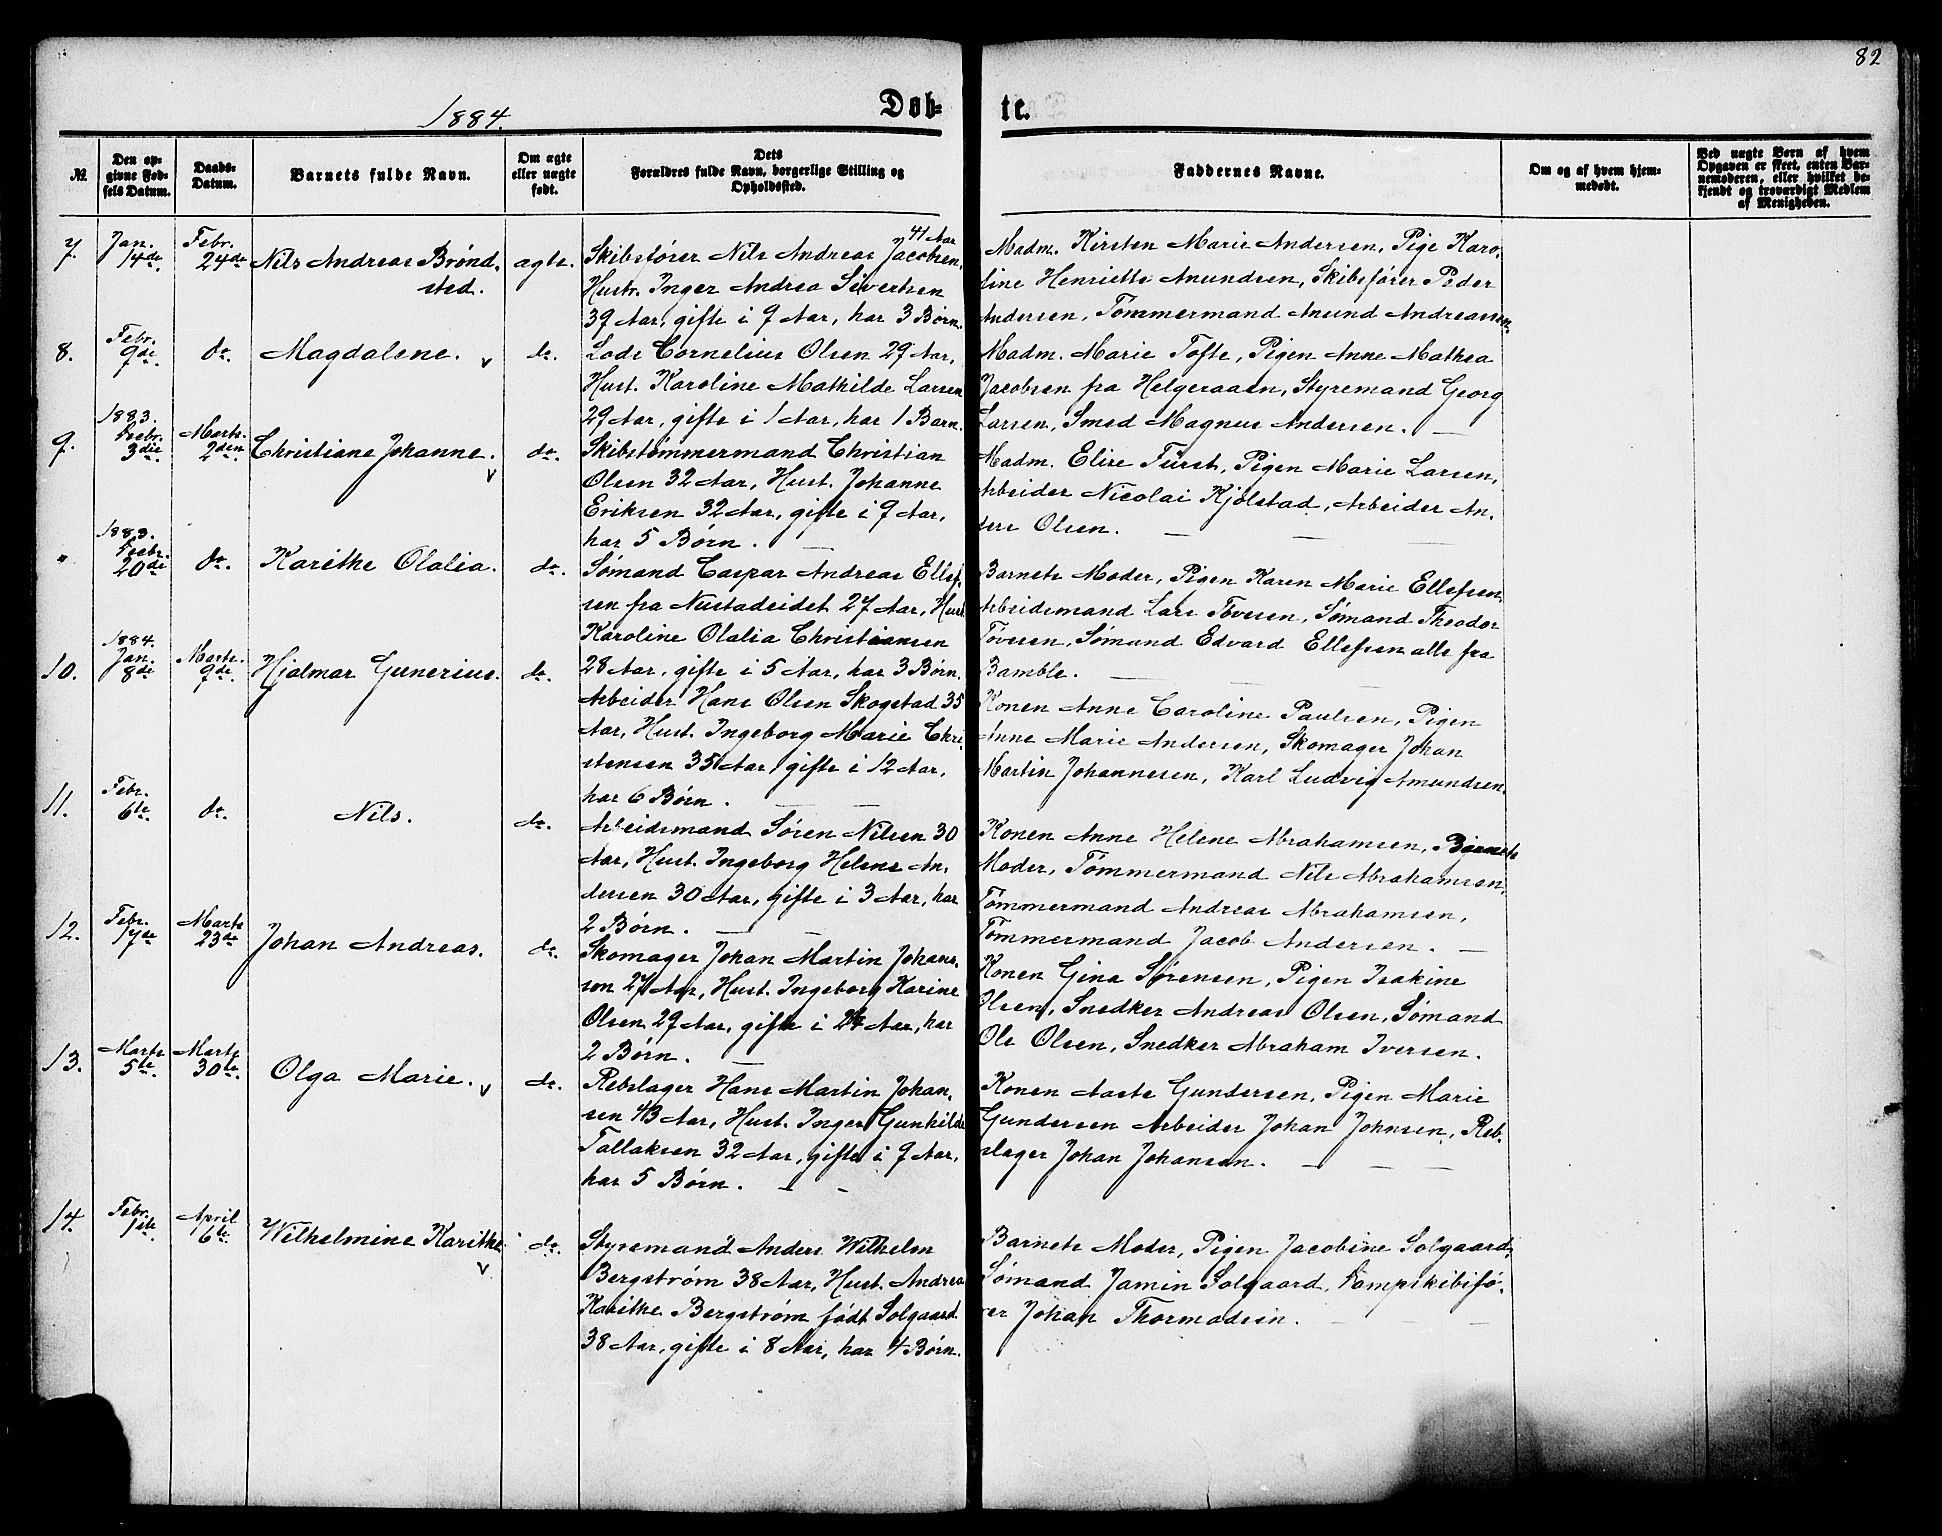 82
1884.
Døb-
te.
№
Den op-
givne Fød-
sels Datum.
Daabs-
Datum.
Barnets fulde Navn.
Om ægte
eller uægte
født.
Dets
Forældres fulde Navn, borgerlige Stilling og
Opholdssted.
Faddernes Navne.
Om og af hvem hjem-
medøbt.
Ved uægte Børn af hvem
Opgaven er skeet, enten Bar-
nemoderen, eller hvilket be-
kjendt og troværdigt Medlem
af Menigheden.
7.
Jan.
14de
Febr.
24de
Nils Andreas Brønd-
sted.
ægte.
41 Aar
Skibsfører Nils Andreas Jacobsen,
Hustr. Inger Andrea Sivertsen
39 Aar, gifte i 9 Aar, har 3 Børn.
Madm. Kirsten Marie Andersen, Pige Karo-
line Henriette Anundsen, Skibsfører Peder
Andersen, Tømmermand Anund Andreassen
8.
Febr.
9de
do.
Magdalene.
do.
Lods Cornelius Olsen 29 Aar,
Hust. Karoline Mathilde Larsen
29 Aar, gifte i 1 Aar, har 1 Barn.
Madm. Marie Tofte, Pigen Anne Mathea
Jacobsen fra Helgeraaen, Styremand Georg
Larsen, Smed Magnus Andersen.
9.
1883.
Decbr.
3die
Marts
2den
Christiane Johanne.
do.
Skibstømmermand Christian
Olsen 32 Aar, Hust. Johanne
Eriksen 32 Aar, gifte i 9 Aar,
har 5 Børn.
Madm. Elise Fürst, Pigen Marie Larsen,
Arbeider Nicolai Kjølstad, Arbeider An-
ders Olsen.
"
1883.
Decbr.
20de
do.
Karithe Olalia.
do.
Sømand Caspar Andreas Ellef-
sen fra Nustadeidet 27 Aar, Hust
Karoline Olalia Christiansen
28 Aar, gifte i 5 Aar, har 3 Børn.
Barnets Moder, Pigen Karen Marie Ellefsen,
Arbeidsmand Lars Tovesen, Sømand Theodor
Tovesen, Sømand Edvard Ellefsen alle fra
Bamble.
10.
1884.
Jan.
8de
Marts
9de
Hjalmar Gunerius.
do.
Arbeider Hans Olsen Skogstad 35
Aar, Hust. Ingeborg Marie Chri-
stensen 35 Aar, gifte i 12 Aar,
har 6 Børn.
Konen Anne Caroline Paulsen, Pigen
Anne Marie Andersen, Skomager Johan
Martin Johannesen, Karl Ludvig Amundsen.
11.
Febr.
6te
do.
Nils.
do.
Arbeidsmand Søren Nilsen 30
Aar, Hust. Ingeborg Helene An-
dersen 30 Aar, gifte i 3 Aar, har
2 Børn.
Konen Anne Helene Abrahamsen, Barnets
Moder, Tømmermand Nils Abrahamsen,
Tømmermand Andreas Abrahamsen,
Tømmermand Jacob Andersen.
12.
Febr.
17de
Marts
23de
Johan Andreas.
do.
Skomager Johan Martin Johans-
son 27 Aar, Hust. Ingeborg Karine
Olsen 29 Aar, gifte i 2 Aar, har
2 Børn.
Konen Gina Sørensen, Pigen Isakine
Olsen, Snedker Andreas Olsen, Sømand
Ole Olsen, Snedker Abraham Iversen.
13.
Marts
5te
Marts
30te
Olga Marie.
do.
Rebslager Hans Martin Johan-
sen 43 Aar, Hust. Inger Gunhilde
Tallaksen 32 Aar, gifte i 9 Aar,
har 5 Børn.
Konen Aaste Gundersen, Pigen Marie
Gundersen Arbeider Johan Johnsen, Reb-
slager Johan Johansen.
14.
Febr.
1ste
April
6te
Wilhelmine Karithe
do.
Styremand Anders Wilhelm
Bergstrøm 38 Aar, Hust. Andrea
Karithe Bergstrøm født Solgaard
38 Aar, gifte i 8 Aar, har 4 Børn.
Barnets Moder, Pigen Jacobine Solgaard,
Sømand Jamin Solgaard, Dampskibsfø-
rer Johan Thormodsen.